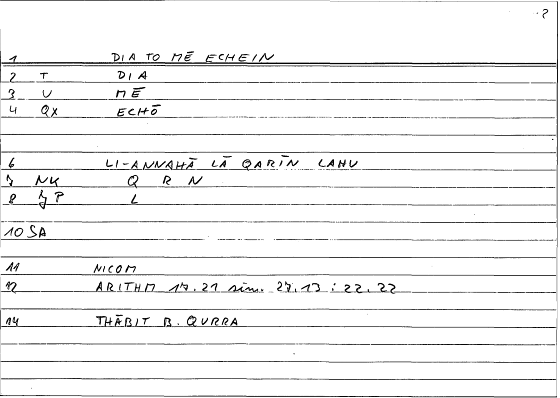 ?
1 DIA TO MĒ ECHEIN
2 T DIA
3 U MĒ
4 QX ECHŌ
6 LI-ANNAHĀ LĀ QARĪN LAHU
7 NK Q R N
8 P L
10 SA
11 NICOM
12 ARITHM 17.21 sim. 27.13 ; 22.22
14 THĀBIT B. QURRA